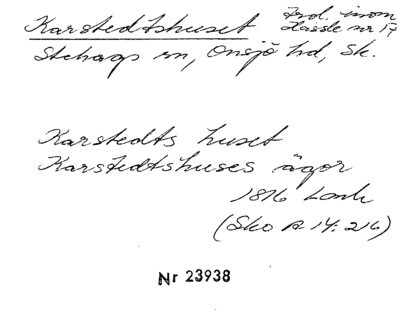 Karstedtshuset Frd. inom
Hassle nr 17
Stehags sn, Onsjö hd, Sk.
Karstedts huset
Karstedtshuses ägor
1876 Lantm
(Sko A 14: 216)
Nr 23938